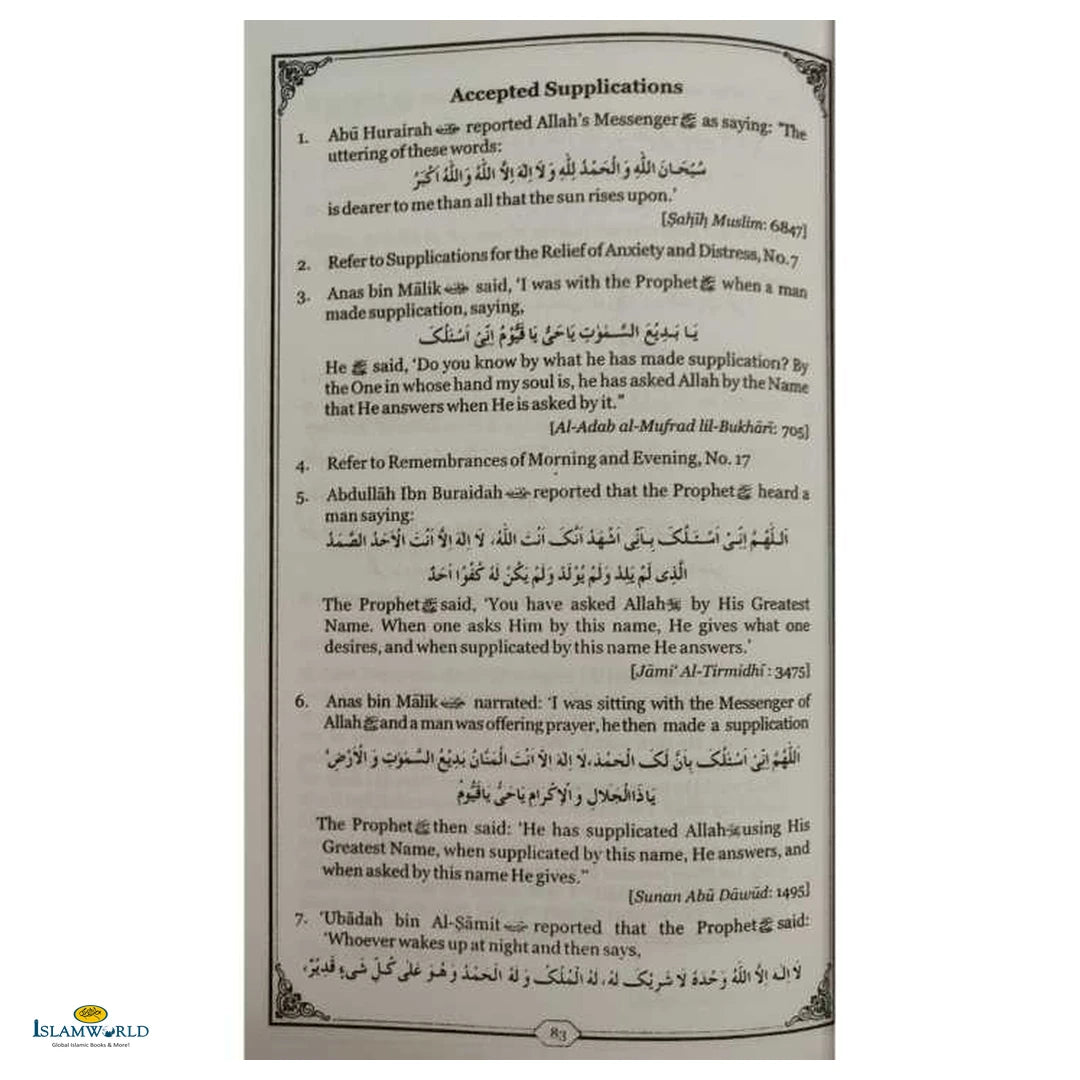 Accepted Supplications
1. Abū Hurairah رضي الله عنه reported Allah's Messenger ﷺ as saying: "The
uttering of these words:
سُبْحَانَ اللّٰهِ وَ الْحَمْدُ لِلّٰهِ وَ لَا اِلٰهَ اِلَّا اللّٰهُ وَ اللّٰهُ اَكْبَرُ
is dearer to me than all that the sun rises upon.'
[Ṣaḥīḥ Muslim: 6847]
2. Refer to Supplications for the Relief of Anxiety and Distress, No. 7
3. Anas bin Mālik رضي الله عنه said, 'I was with the Prophet ﷺ when a man
made supplication, saying,
يَا بَدِيْعَ السَّمٰوٰتِ يَا حَىُّ يَا قَيُّوْمُ اِنِّىْ اَسْئَلُکَ
He ﷺ said, 'Do you know by what he has made supplication? By
the One in whose hand my soul is, he has asked Allah by the Name
that He answers when He is asked by it."
[Al-Adab al-Mufrad lil-Bukhārī: 705]
4. Refer to Remembrances of Morning and Evening, No. 17
5. Abdullāh Ibn Buraidah رضي الله عنه reported that the Prophet ﷺ heard a
man saying:
اَللّٰهُمَّ اِنِّىْ اَسْئَلُکَ بِاَنِّى اَشْهَدُ اَنَّکَ اَنْتَ اللّٰهُ، لَا اِلٰهَ اِلَّا اَنْتَ الْاَحَدُ الصَّمَدُ
الَّذِى لَمْ يَلِدْ وَلَمْ يُوْلَدْ وَلَمْ يَكُنْ لَهٗ كُفُوًا اَحَدٌ
The Prophet ﷺ said, 'You have asked Allah ﷻ by His Greatest
Name. When one asks Him by this name, He gives what one
desires, and when supplicated by this name He answers.'
[Jāmi' Al-Tirmidhī : 3475]
6. Anas bin Mālik رضي الله عنه narrated: 'I was sitting with the Messenger of
Allah ﷺ and a man was offering prayer, he then made a supplication
اَللّٰهُمَّ اِنِّىْ اَسْئَلُکَ بِاَنَّ لَکَ الْحَمْدَ، لَا اِلٰهَ اِلَّا اَنْتَ الْمَنَّانُ بَدِيْعُ السَّمٰوٰتِ وَ الْاَرْضِ
يَا ذَا الْجَلَالِ وَ الْاِكْرَامِ يَا حَىُّ يَا قَيُّوْمُ
The Prophet ﷺ then said: 'He has supplicated Allah ﷻ using His
Greatest Name, when supplicated by this name, He answers, and
when asked by this name He gives."
[Sunan Abū Dāwūd: 1495]
7. 'Ubādah bin Al-Ṣāmit رضي الله عنه reported that the Prophet ﷺ said:
'Whoever wakes up at night and then says,
لَا اِلٰهَ اِلَّا اللّٰهُ وَحْدَهٗ لَا شَرِيْکَ لَهٗ، لَهُ الْمُلْکُ وَ لَهُ الْحَمْدُ وَ هُوَ عَلٰى كُلِّ شَىْءٍ قَدِيْرٌ،
83
ISLAMWORLD
Global Islamic Books & More!